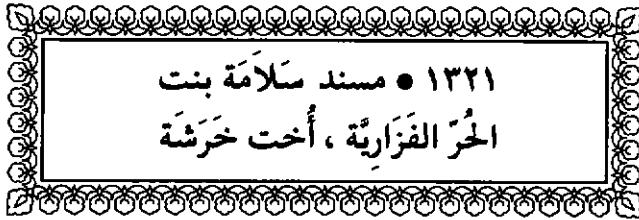 ١٣٢١ ● مسند سَلاَمَة بنت
الحُرّ الفَزَارِيَّة ، أُخت خَرَشَة